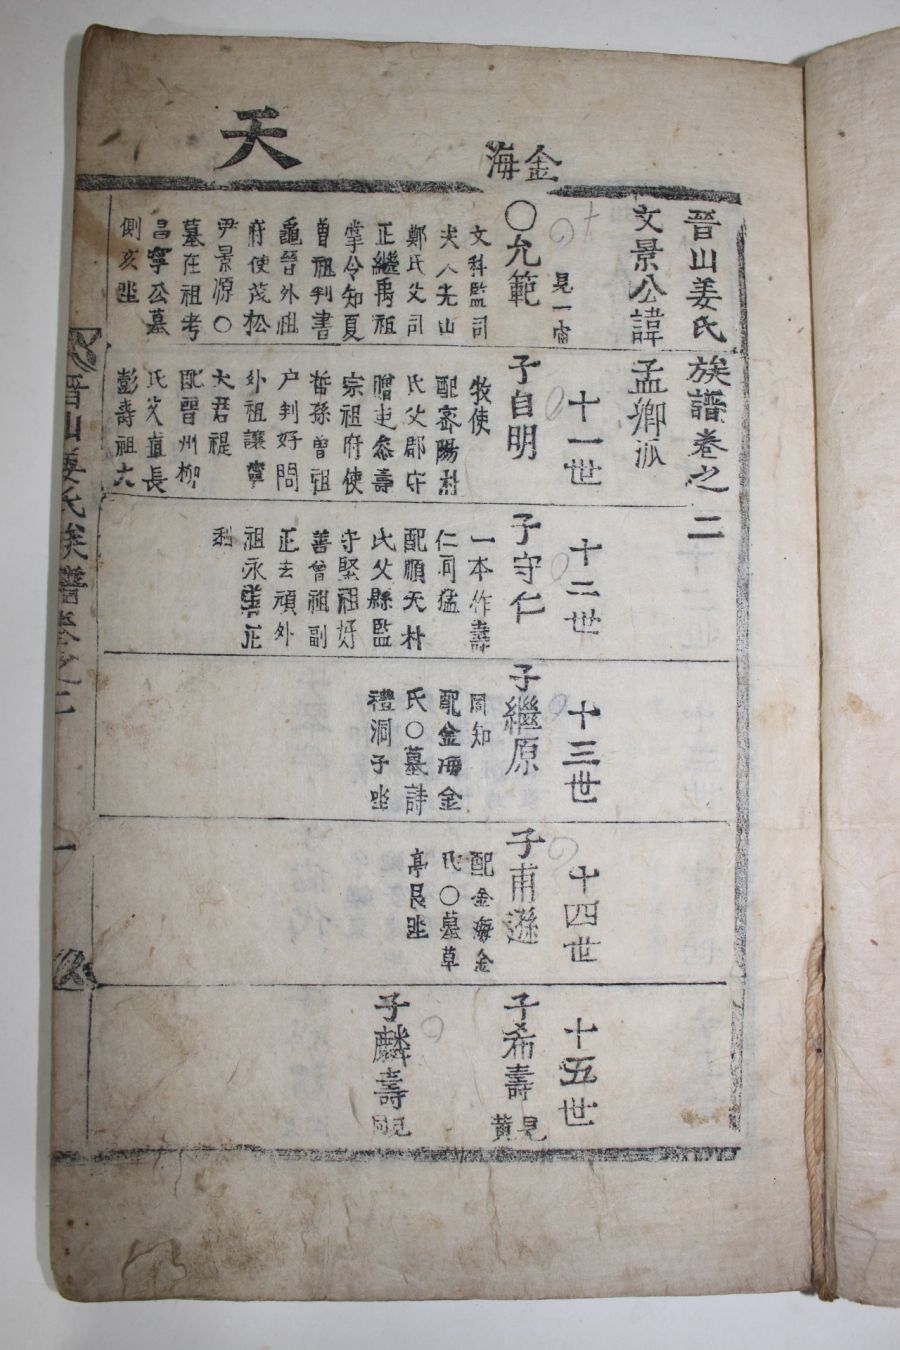 天
金海
晉山姜氏族譜卷之二
文景公諱孟卿派
見一宙
○允範
文科監司
夫人光山
鄭氏父司
正繼禹祖
掌令知夏
曾祖判書
龜晉外祖
府使茂松
尹景源○
墓在祖考
昌寧公墓
側亥坐
十一世
子自明
牧使
配密陽朴
氏父郡守
贈吏參壽
宗祖府使
哲孫曾祖
户判好問
外祖讓寧
大君禔
配晉州柳
氏父直長
彭壽祖大
十二世
子守仁
一本作壽
仁司猛
配順天朴
氏父縣監
守堅祖好
善曾祖副
正去頑外
祖永善正
十三世
子繼原
同知
配金海金
氏○墓詩
禮洞子坐
十四世
子甫遜
配金海金
氏○墓草
亭艮坐
十五世
子希壽
見黃
子麟壽
見
晉山姜氏族譜卷之二
一